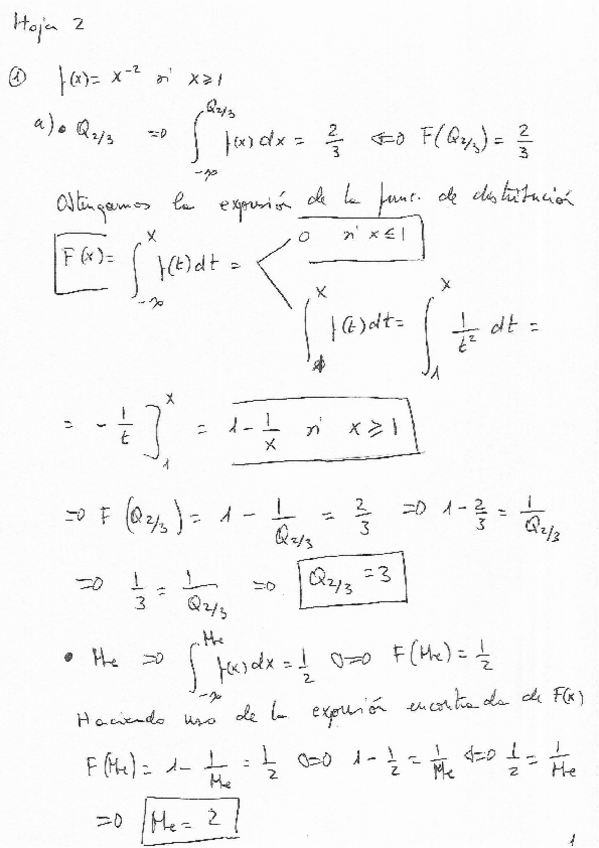 Hoja 2
① f(x) = x⁻² si x ≥ 1
a) • Q_{2/3} ⇒ ∫_{-∞}^{Q_{2/3}} f(x) dx = 2/3 ⇔ F(Q_{2/3}) = 2/3
Obtengamos la expresión de la func. de distribución
F(x) = ∫_{-∞}^{x} f(t) dt = < 0 si x ≤ 1
∫_{1}^{x} f(t) dt = ∫_{1}^{x} 1/t² dt =
= - 1/t ]_{1}^{x} = 1 - 1/x si x ≥ 1
⇒ F(Q_{2/3}) = 1 - 1/Q_{2/3} = 2/3 ⇒ 1 - 2/3 = 1/Q_{2/3}
⇒ 1/3 = 1/Q_{2/3} ⇒ Q_{2/3} = 3
• Me ⇒ ∫_{-∞}^{Me} f(x) dx = 1/2 ⇔ F(Me) = 1/2
Haciendo uso de la expresión encontrada de F(x)
F(Me) = 1 - 1/Me = 1/2 ⇔ 1 - 1/2 = 1/Me ⇔ 1/2 = 1/Me
⇒ Me = 2
1